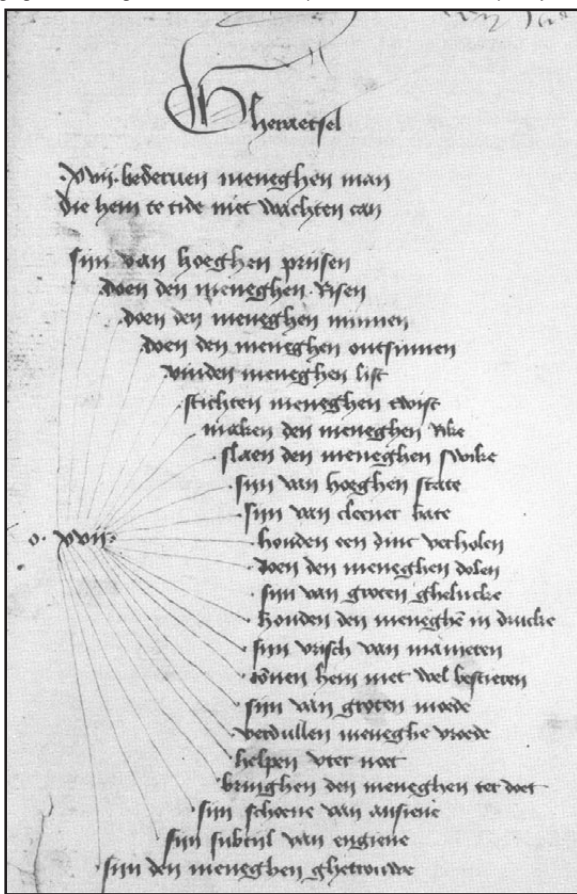 Gheraetsel
.xvij. bederuen meneghen man
die hem te tide niet wachten can
sijn van hoeghen prijsen
doen den meneghen risen
doen den meneghen minnen
doen den meneghen ontsinnen
vinden meneghen list
stichten meneghen twist
maken den meneghen rike
slaen den meneghen swike
sijn van hoeghen state
sijn van cleener bate
o. xvij.
houden een dinc verholen
doen den meneghen dolen
sijn van groten ghelucke
houden den meneghē in drucke
sijn vrisch van manieren
cōnen hem niet wel bestieren
sijn van groten moede
verdullen meneghe vroede
helpen vter noet
bringhen den meneghen ter doet
sijn schoene van ansiene
sijn subtijl van engiene
sijn den meneghen ghetrouwe